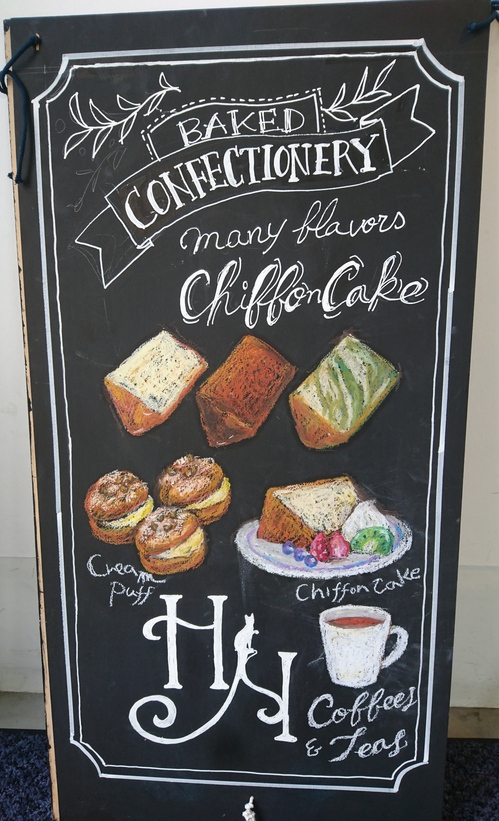 BAKED
CONFECTIONERY
many flavors
Chiffon Cake
Cream
Puff
Chiffon Cake
HN
Coffees
& Teas